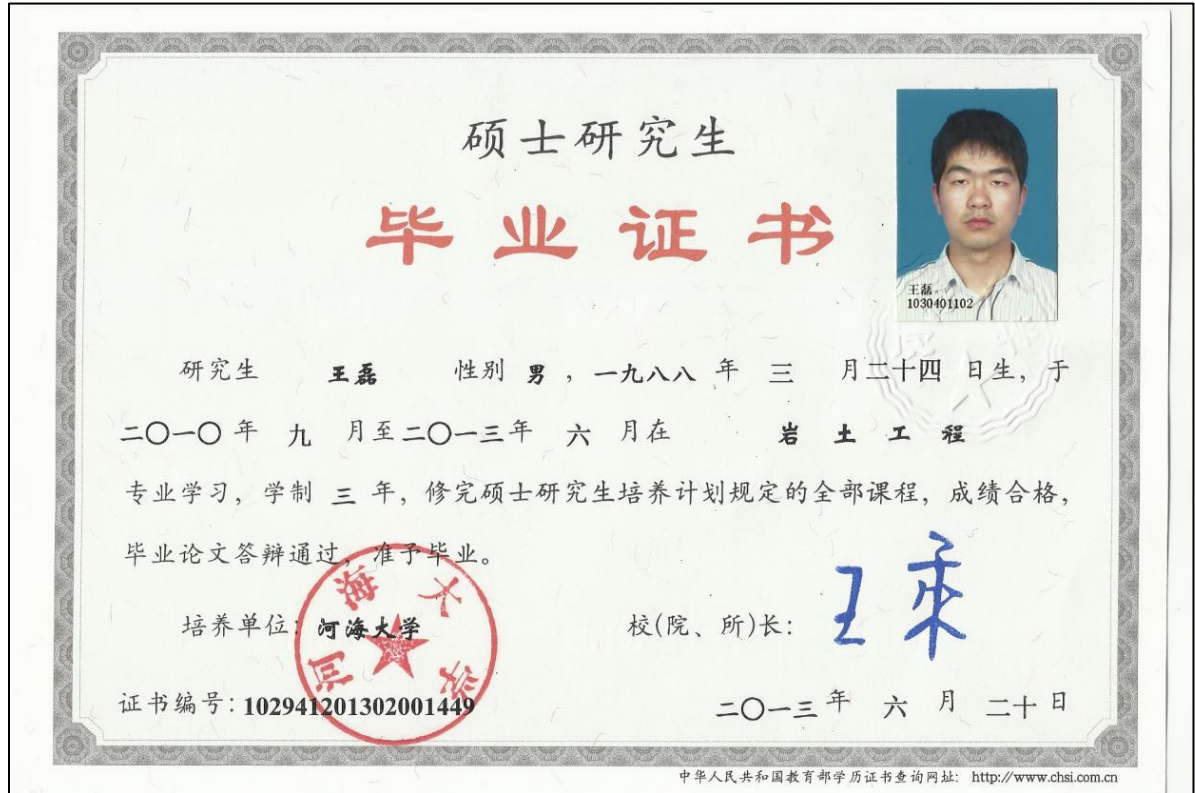 硕士研究生
毕业证书
王磊
1030401102
研究生 王磊 性别 男，一九八八 年 三 月二十四 日生，于
二〇一〇 年 九 月至二〇一三年 六 月在 岩土工程
专业学习，学制 三 年，修完硕士研究生培养计划规定的全部课程，成绩合格，
毕业论文答辩通过，准予毕业。
培养单位：河海大学
校(院、所)长：王乘
河海大学
证书编号：102941201302001449
二〇一三 年 六 月 二十 日
中华人民共和国教育部学历证书查询网址: http://www.chsi.com.cn